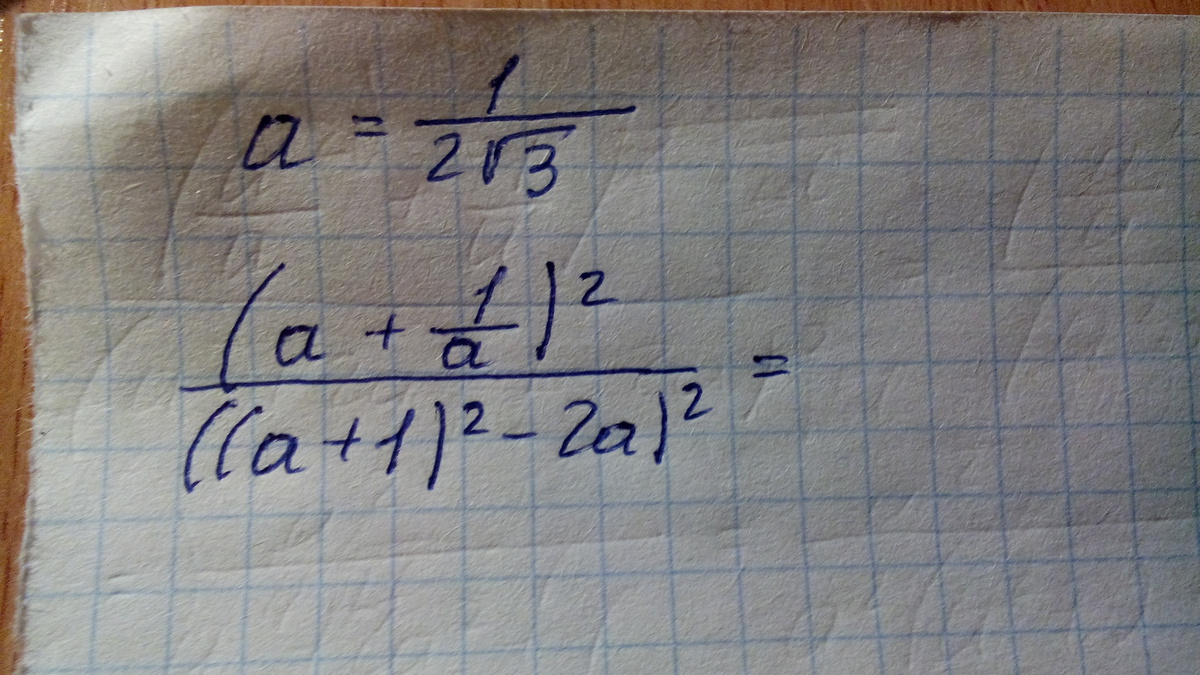 a = 1/(2√3)
(a + 1/a)² / ((a+1)² - 2a)² =